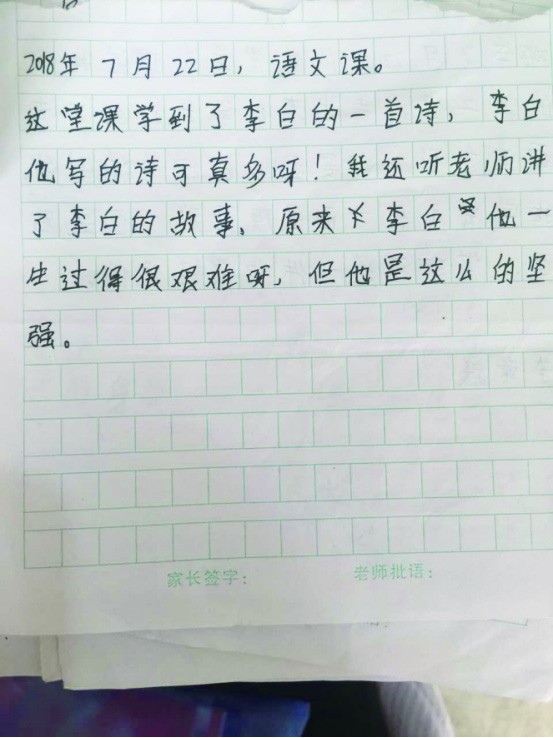 2018年7月22日，语文课。
这堂课学到了李白的一首诗，李白
他写的诗可真多呀！我还听老师讲
了李白的故事。原来李白他一
生过得很艰难呀，但他是这么的坚
强。
家长签字：老师批语：